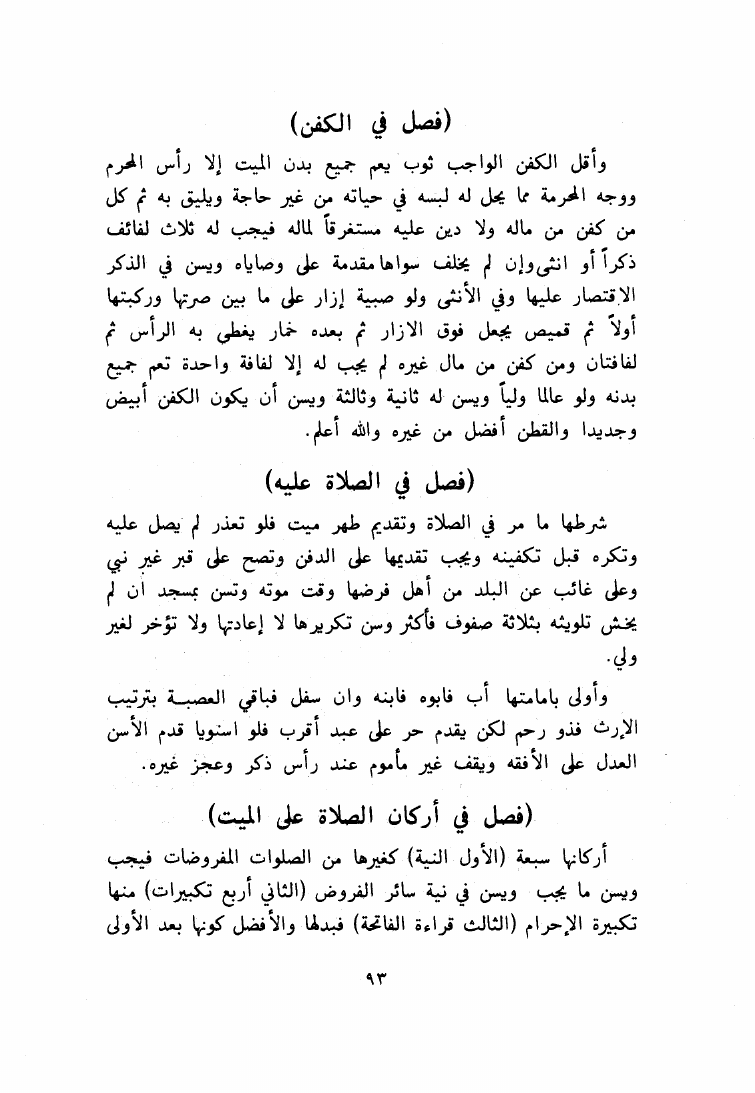 (فصل في الكفن)
وأقل الكفن الواجب ثوب يعم جميع بدن الميت إلا رأس المحرم
ووجه المحرمة مما يحل له لبسه في حياته من غير حاجة ويليق به ثم كل
من كفن من ماله ولا دين عليه مستغرقاً لماله فيجب له ثلاث لفائف
ذكراً أو انثى وإن لم يخلف سواها مقدمة على وصاياه ويسن في الذكر
الاقتصار عليها وفي الأنثى ولو صبية إزار على ما بين صرتها وركبتها
أولاً ثم قميص يجعل فوق الازار ثم بعده خمار يغطى به الرأس ثم
لفافتان ومن كفن من مال غيره لم يجب له إلا لفافة واحدة تعم جميع
بدنه ولو عالما ولياً ويسن له ثانية وثالثة ويسن أن يكون الكفن أبيض
وجديدا والقطن أفضل من غيره والله أعلم.
(فصل في الصلاة عليه)
شرطها ما مر في الصلاة وتقديم طهر ميت فلو تعذر لم يصل عليه
وتكره قبل تكفينه ويجب تقديمها على الدفن وتصح على قبر غير نبي
وعلى غائب عن البلد من أهل فرضها وقت موته وتسن بمسجد ان لم
يخش تلويثه بثلاثة صفوف فأكثر وسن تكريرها لا إعادتها ولا تؤخر لغير
ولي.
وأولى بامامتها أب فابوه فابنه وان سفل فباقي العصبة بترتيب
الإرث فذو رحم لكن يقدم حر على عبد أقرب فلو استويا قدم الأسن
العدل على الأفقه ويقف غير مأموم عند رأس ذكر وعجز غيره.
(فصل في أركان الصلاة على الميت)
أركانها سبعة (الأول النية) كغيرها من الصلوات المفروضات فيجب
ويسن ما يجب ويسن في نية سائر الفروض (الثاني أربع تكبيرات) منها
تكبيرة الإحرام (الثالث قراءة الفاتحة) فبدلها والأفضل كونها بعد الأولى
٩٣